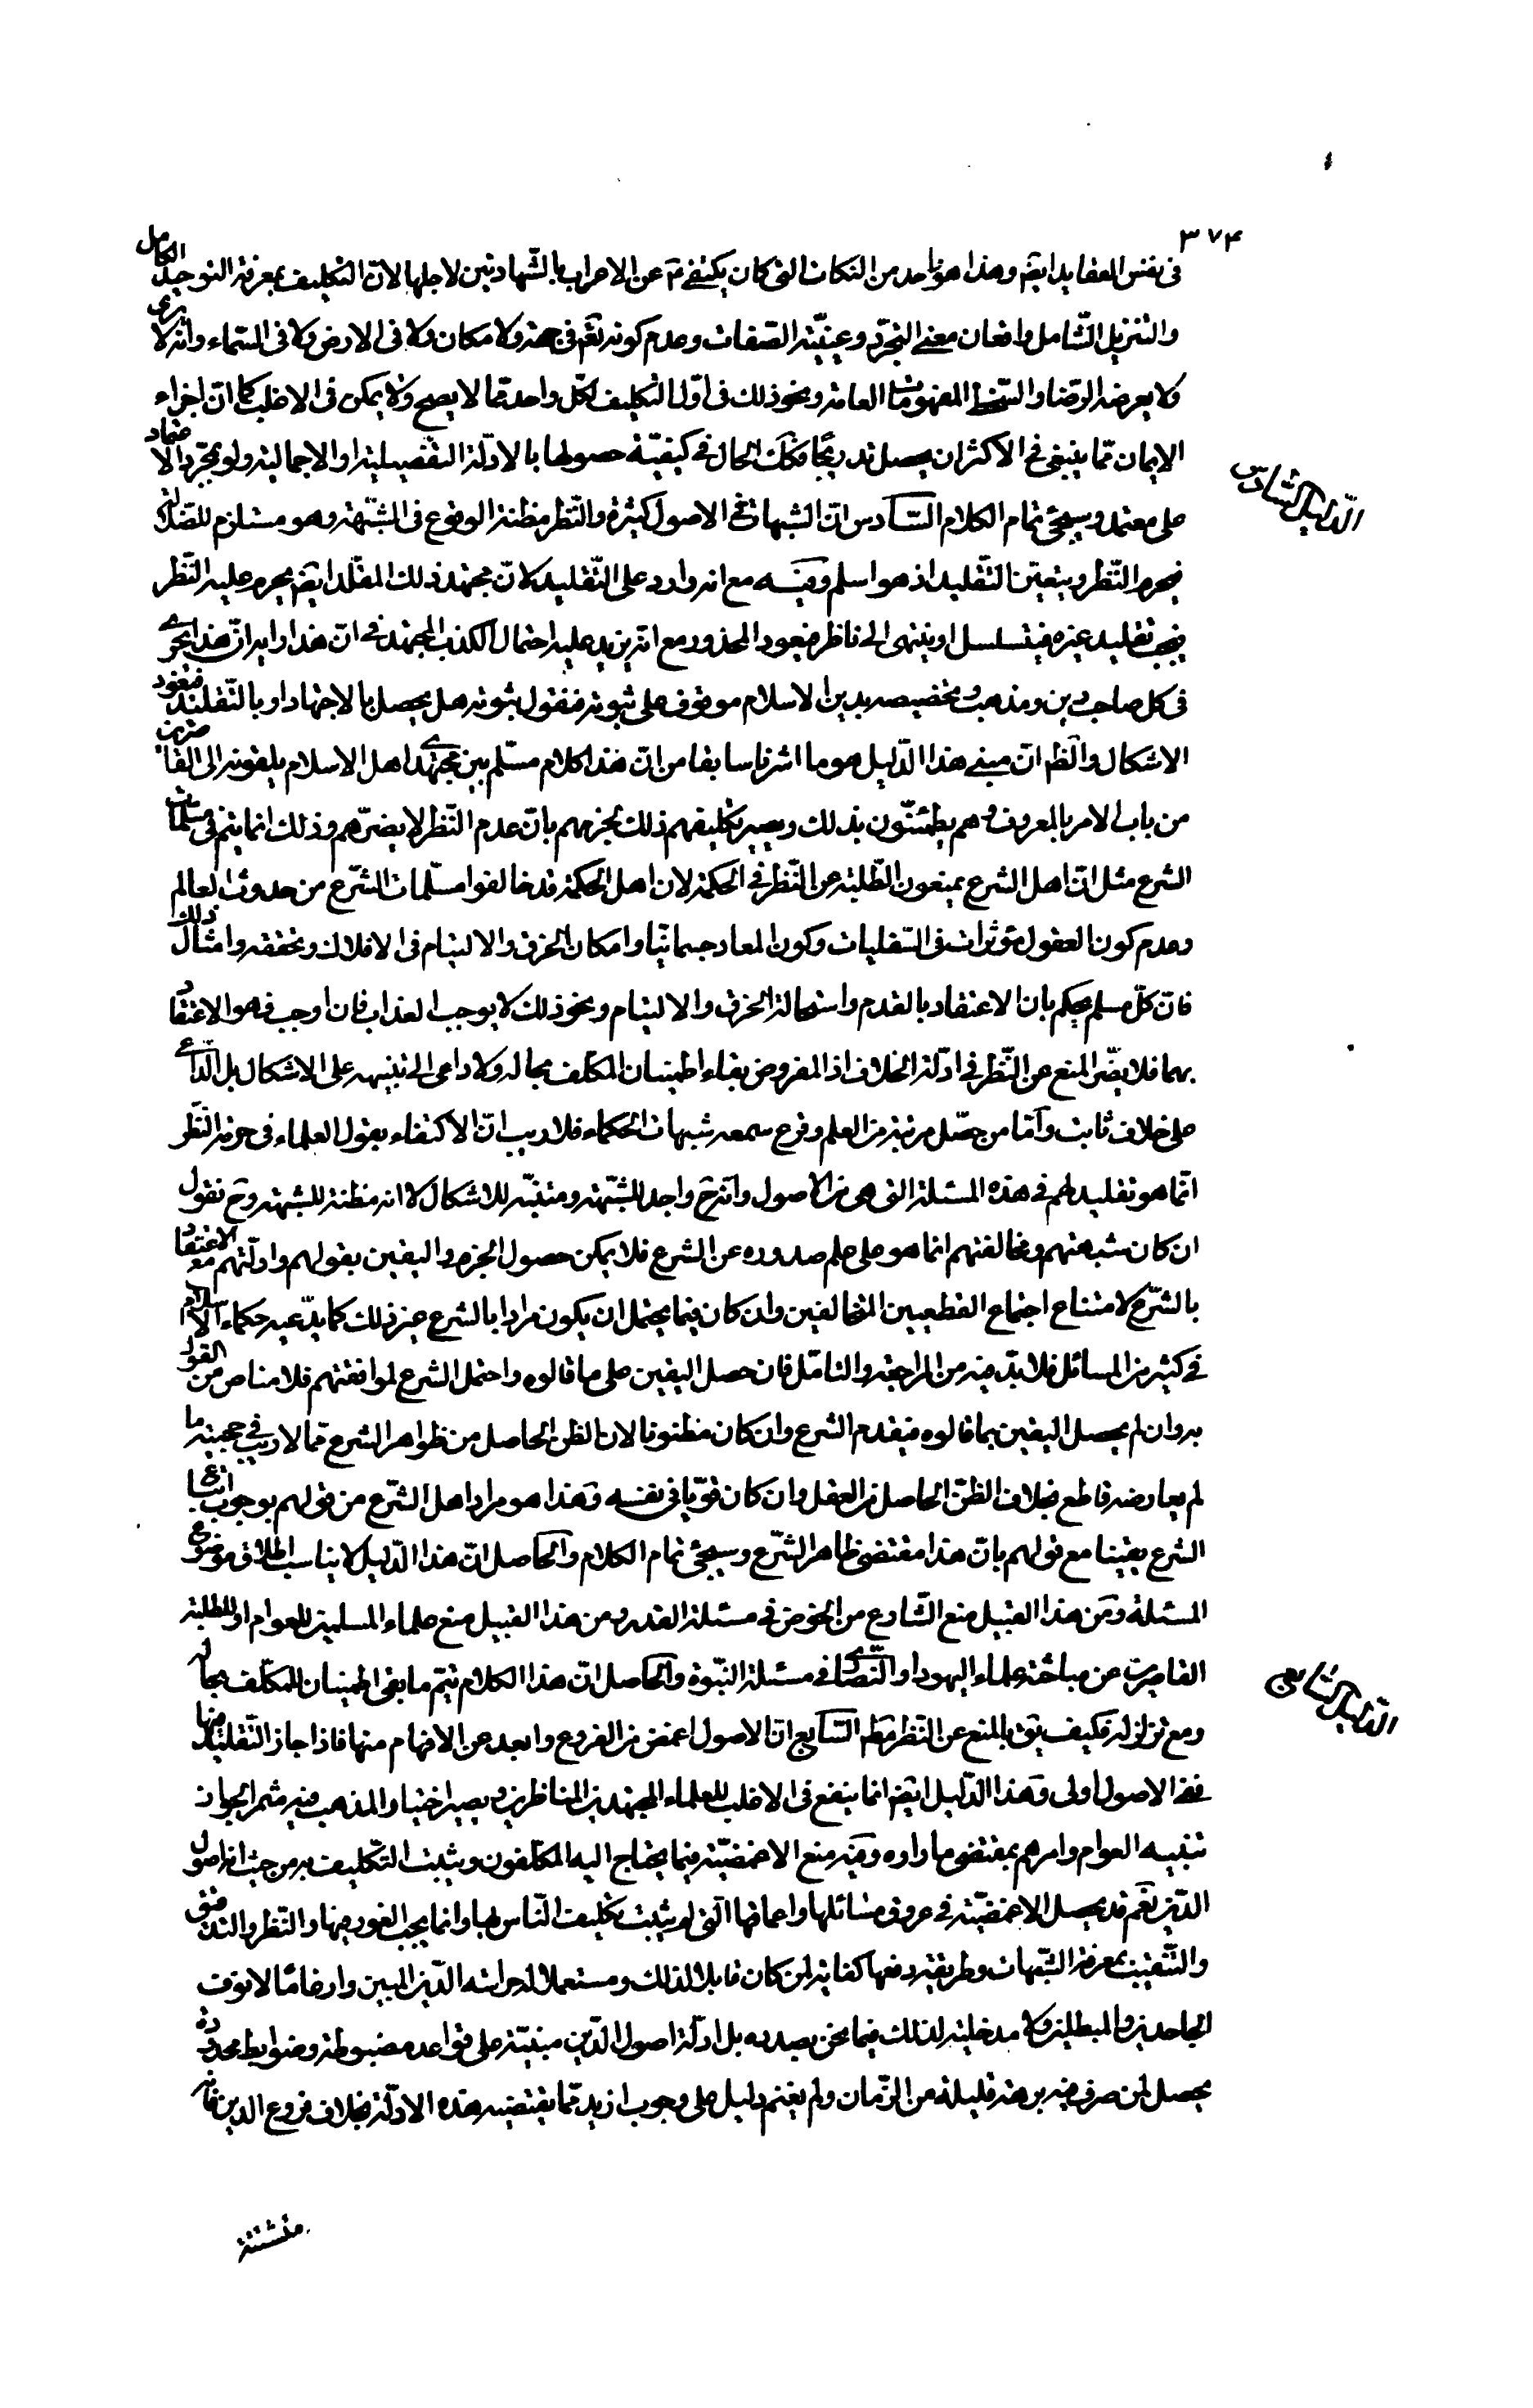 ٣٧۴
فى نفس العقايد ايضم وهذا هو واحد من النكات التى كان يكتفى ص عن الاعراب بالشّهادتين لاجلها لانّ التكليف بمعرفة التوحيد الكامل
والتنزيل الشّامل واذعان معنى التجرّد وعينيّة الصّفات وعدم كونه تعم فى جهة ولا مكان ولا فى الارض ولا فى السّماء وانه لا يرى
ولا يعرضه الرضا والسّخط المفهومان للعامة ونحو ذلك فى اوّل التكليف لكلّ واحد ممّا لا يصحّ ولا يمكن فى الاغلب كما انّ اجزاء
الايمان ممّا ينبغى فى الاكثر ان يحصل تدريجا فكك الحال فى كيفيّة حصولها بالادلّة التفصيلية او الاجمالية ولو بمجرّد الاعتماد
على معتمد وسيجئ تمام الكلام السّادس انّ الشبهات فى الاصول كثيرة والنّظر مظنة الوقوع فى الشّبهة وهو مستلزم للضّلالة
فيحرم النّظر ويتعيّن التّقليد اذ هو اسلم وفيه مع انه وارد على التّقليد لانّ مجتهد ذلك المقلّد ايضم يحرم عليه النّظر
فيجب تقليد غيره فيتسلسل او ينتهى الى ناظر فيعود المحذور مع انه يزيد عليه احتمال الكذب المجتهد فى انّ هذا رايه انّ هذا يجرى
فى كل صاحب دين ومذهب وتخصيصه بدين الاسلام موقوف على ثبوته فنقول ثبوته هل يحصل بالاجتهاد او بالتّقليد فيعود
الاشكال والظم انّ مبنى هذا الدّليل هو ما اشرنا سابقا من انّ هذا كلام مسلّم بين مجتهدى اهل الاسلام يلقونه الى القاصرين
من باب الامر بالمعروف وهم يطمئنّون بذلك ويصير تكليفهم ذلك لجزمهم بانّ عدم النّظر لا يضرّهم وذلك انما يتم فى مسلّمات
الشرع مثل انّ اهل الشرع يمنعون الطّلبة عن النّظر فى الحكمة لان اهل الحكمة قد خالفوا مسلّمات الشّرع من حدوث العالم
وعدم كون العقول مؤثرات فى السّفليات وكون المعاد جسمانيّا وامكان الخرق والالتيام فى الافلاك وتحققه وامثال ذلك
فانّ كلّ مسلم يحكم بان الاعتقاد بالقدم واستحالة الخرق والالتيام ونحو ذلك لا يوجب العذاب فان اوجب فهو الاعتقاد
بهما فلا يضرّ المنع عن النّظر فى ادلّة الخلاف اذ المفروض بقاء اطمينان المكلّف بحاله ولا داعى الى تنبيهه على الاشكال بل الدّاعى
على خلاف ثابت وامّا من حصّل مرتبة من العلم وقرع سمعه شبهات الحكماء فلا ريب انّ الاكتفاء بقول العلماء فى حرمة النّظر
انّما هو تقليد لهم فى هذه المسئلة التى هى من الاصول وانّه ح واجد للشّبهة ومتنبّه للاشكال لا انه مظنة للشبهة وح نقول
ان كان شبهتهم ومخالفتهم انما هو على علم صدوره عن الشرع فلا يمكن حصول الجزم واليقين بقولهم وادلّتهم مع الاعتقاد
بالشّرع لامتناع اجتماع القطعيين المتخالفين وان كان فيما يحتمل ان يكون مرادا بالشرع غير ذلك كما يدّعيه حكماء الاسلام
فى كثير من المسائل فلا بدّ فيه من المراجعة والتامّل فان حصل اليقين على ما قالوه واحتمل الشرع لموافقتهم فلا مناص من القول
به وان لم يحصل اليقين بما قالوه فيقدم الشرع وان كان مظنونا لان الظن الحاصل من ظواهر الشرع ممّا لا ريب فى حجيته ما
لم يعارضه قاطع بخلاف الظنّ الحاصل من العقل وان كان قويّا فى نفسه وهذا هو مراد اهل الشّرع من قولهم بوجوب اتباع
الشرع يقينا مع قولهم بانّ هذا مقتضى ظاهر الشّرع وسيجئ تمام الكلام والحاصل انّ هذا الدّليل لا يناسب اطلاق موضوع
المسئلة ومن هذا القبيل منع الشّارع من الخوض فى مسئلة القدر ومن هذا القبيل منع علماء المسلمين للعوام او للطلبة
القاصرين عن مباحثة علماء اليهود او النّصارى فى مسئلة النبّوة والحاصل انّ هذا الكلام يتم ما بقى اطمينان المكلّف بحاله
ومع تزلزله فكيف يق بالمنع عن النّظر مطم السّابع انّ الاصول اغمض من الفروع وابعد عن الافهام منها فاذا جاز التّقليد فيها
ففى الاصول اولى وهذا الدّليل ايضم انما ينفع فى الاغلب للعلماء المجتهدين المناظرين ويصير اختيار المذهب فيه مثمرا لجواز
تنبيه العوام وامرهم بمقتضى ما راوه وفيه منع الاغمضيّة فيما يحتاج اليه المكلّفون ويثبت التّكليف به من حيث انه اصول
الدّين نعم قد يحصل الاغمضيّة فى عروق مسائلها واعماقها التى لم يثبت تكليف النّاس بها وانما يجب الغور فيها والنّظر والتدقيق
والتّفتيت بمعرفة الشّبهات وطريقة دفعها كفاية لمن كان قابلا لذلك ومستعملا لحراسة الدّين المبين وارغاما لانوف
الجاحدين والمبطلين ولا مدخلية لذلك فيما نحن بصدده بل ادلّة اصول الدّين مبنيّة على قواعد مضبوطة وضوابط محدودة
يحصل لمن صرف فيه برهة قليلة من الزّمان ولم يقم دليل على وجوب ازيد ممّا يقتضيه هذه الادلّة بخلاف فروع الدين فانه
الدّليل السّادس
الدّليل السّابع